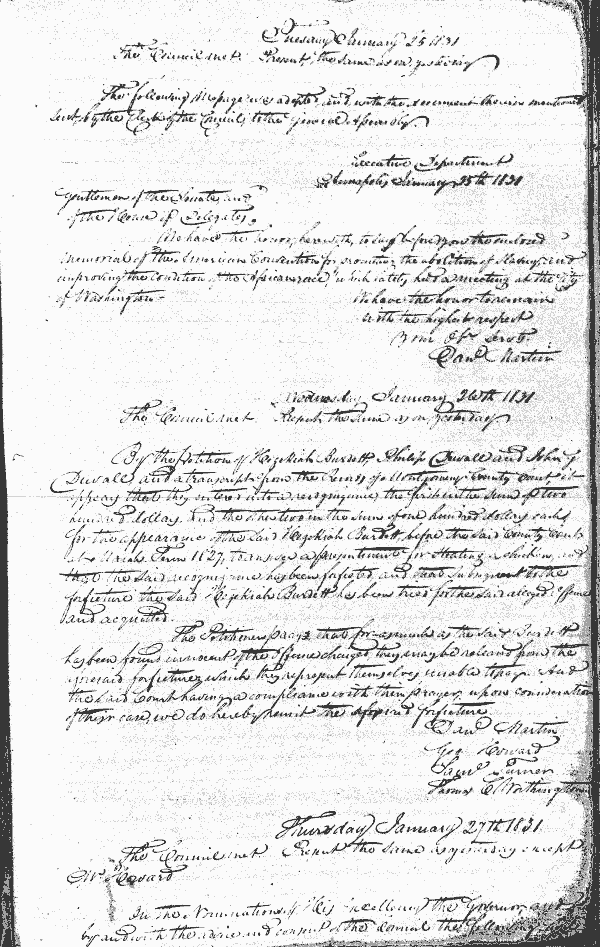 Tuesday January 25 1831
The Council met. Present, the same as on yesterday
The following Message was adopted, and, with the document therein mentioned
sent, by the Clerk of the Council, to the General Assembly.
Executive Department
Annapolis January 25th 1831
Gentlemen of the Senate, and
of the House of Delegates.
We have the honor, herewith, to lay before you the enclosed
Memorial of the "American Convention for promoting the abolition of Slavery, and
improving the Condition of the African race," which lately held a meeting at the City
of Washington.
We have the honor to remain
with the highest respect
Your Obt Servts
Danl Martin
Wednesday January 26th 1831
The Council met. Present the same as on yesterday
By the Petition of Hezekiah Burdett Philip Duvall and John J
Duvall and a transcript from the Records of Montgomery County Court, it
appears that they entered into a recognizance, the first in the sum of two
hundred dollars, and the other two in the sum of one hundred dollars each,
for the appearance of the said Hezekiah Burdett, before the said County Court
at March Term 1827, to answer a presentment for stealing a chicken, and
that the said recognizance has been forfeited, and that subsequent to the
forfeiture the said Hezekiah Burdett has been tried for the said alleged offence
and acquitted.
The Petitioners pray, that for as much as the said Burdett
has been found innocent of the offence charged they may be released from the
aforesaid forfeiture, which they represent themselves unable to pay. And
the said Court having a compliance with their prayer, upon consideration
of their case, we do hereby remit the aforesaid forfeiture
Danl Martin
Geo Howard
Saml Turner
Thomas C Worthington
Thursday January 27th 1831
The Council met. Present the same as yesterday except
Mr. Howard
In the Nomination of His Excellency the Governor, and
by and with the advice and consent of the Council the following